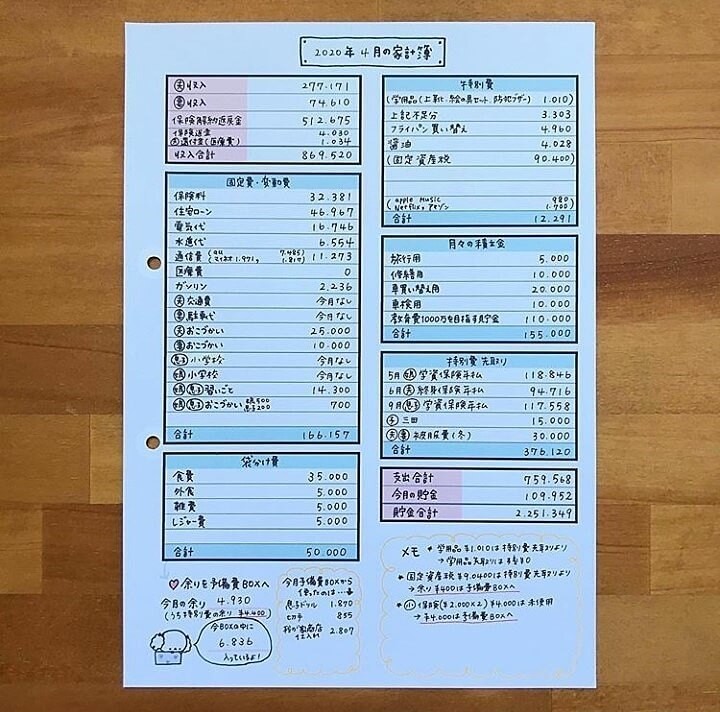 2020年4月の家計簿
夫収入 277.171
妻収入 74.610
保険解約返戻金 512.675
保険送金 4.030
夫還付金(医療費) 1.034
収入合計 869.520
固定費・変動費
保険料 32.381
住宅ローン 46.967
電気代 16.746
水道代 6.554
通信費 (au 7.485 マイネオ1.971, 1.817) 11.273
医療費 0
ガソリン 2.236
夫交通費 今月なし
妻駐車代 今月なし
夫おこづかい 25.000
妻おこづかい 10.000
息子小学校 今月なし
娘小学校 今月なし
娘息子習いごと 14.300
娘息子おこづかい 娘500 息子200 700
合計 166.157
袋分け費
食費 35.000
外食 5.000
雑費 5.000
レジャー費 5.000
合計 50.000
♡余りを予備費BOXへ
今月の余り 4.930
(うち特別費の余り ¥4.400)
今BOXの中に
6.836
入っているよ!
今月予備費BOXから
使ったのは…
息子ドリル 1.870
ヒカチ 855
商店
仕入れ 2.807
特別費
(学用品(上靴.絵の具セット.防犯ブザー) 1.010)
上記不足分 3.303
フライパン買い替え 4.960
醤油 4.028
(固定資産税 90.400)
(apple music 980
Netflix, アマゾン 1.700)
合計 12.291
月々の積立金
旅行用 5.000
修繕用 10.000
車買い替え用 20.000
車検用 10.000
教育費1000万を目指す貯金 110.000
合計 155.000
特別費 先取り
5月娘学資保険年払 118.846
6月夫終身保険年払 94.716
9月息子学資保険年払 117.558
三田 15.000
夫妻被服費(冬) 30.000
合計 376.120
支出合計 759.568
今月の貯金 109.952
貯金合計 2.251.349
メモ *学用品¥1.010は特別費先取りより
→学用品先取りは残¥0
*固定資産税¥9.0400は特別費先取りより
→余り¥400は予備費BOXへ
*小保険(¥2.000×2)¥4.000は未使用
→¥4.000は予備費BOXへ